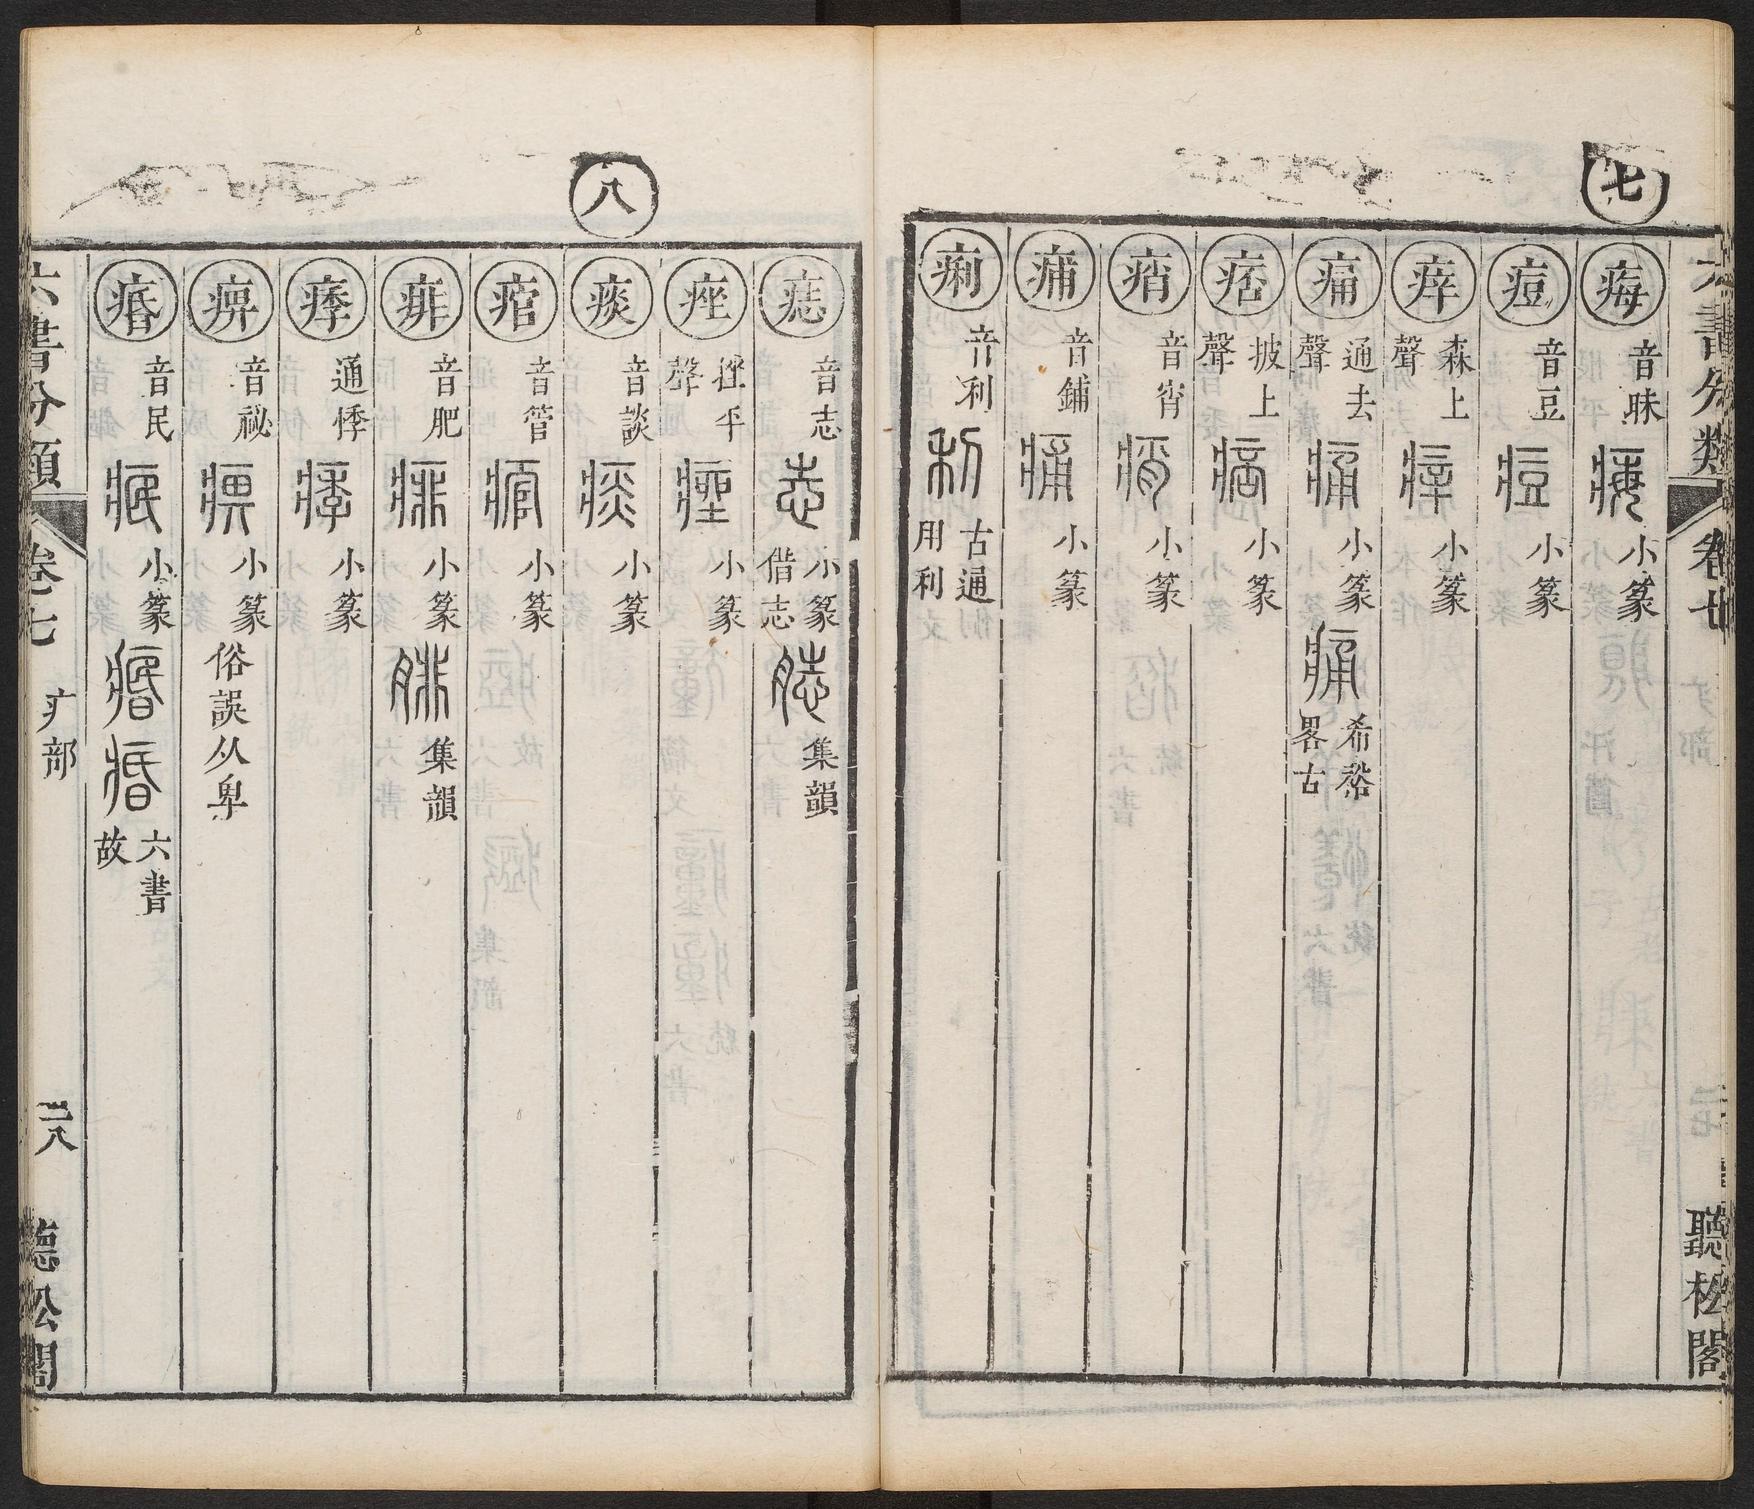 七
痗 音昧 小篆
痘 音豆 小篆
痵 森上聲 小篆
痛 通去聲 小篆 希裕畧古
痞 披上聲 小篆
痟 音宵 小篆
痡 音鋪 小篆
痢 音利 古通用利
八
痣 音志 小篆借志 集韻
痤 挫平聲 小篆
痰 音談 小篆
痯 音管 小篆
痱 音肥 小篆 集韻
痵 通悸 小篆
痹 音祕 小篆 俗誤从卑
痻 音民 小篆 六書故
六書分類 卷七 疒部 二八 聽松閣